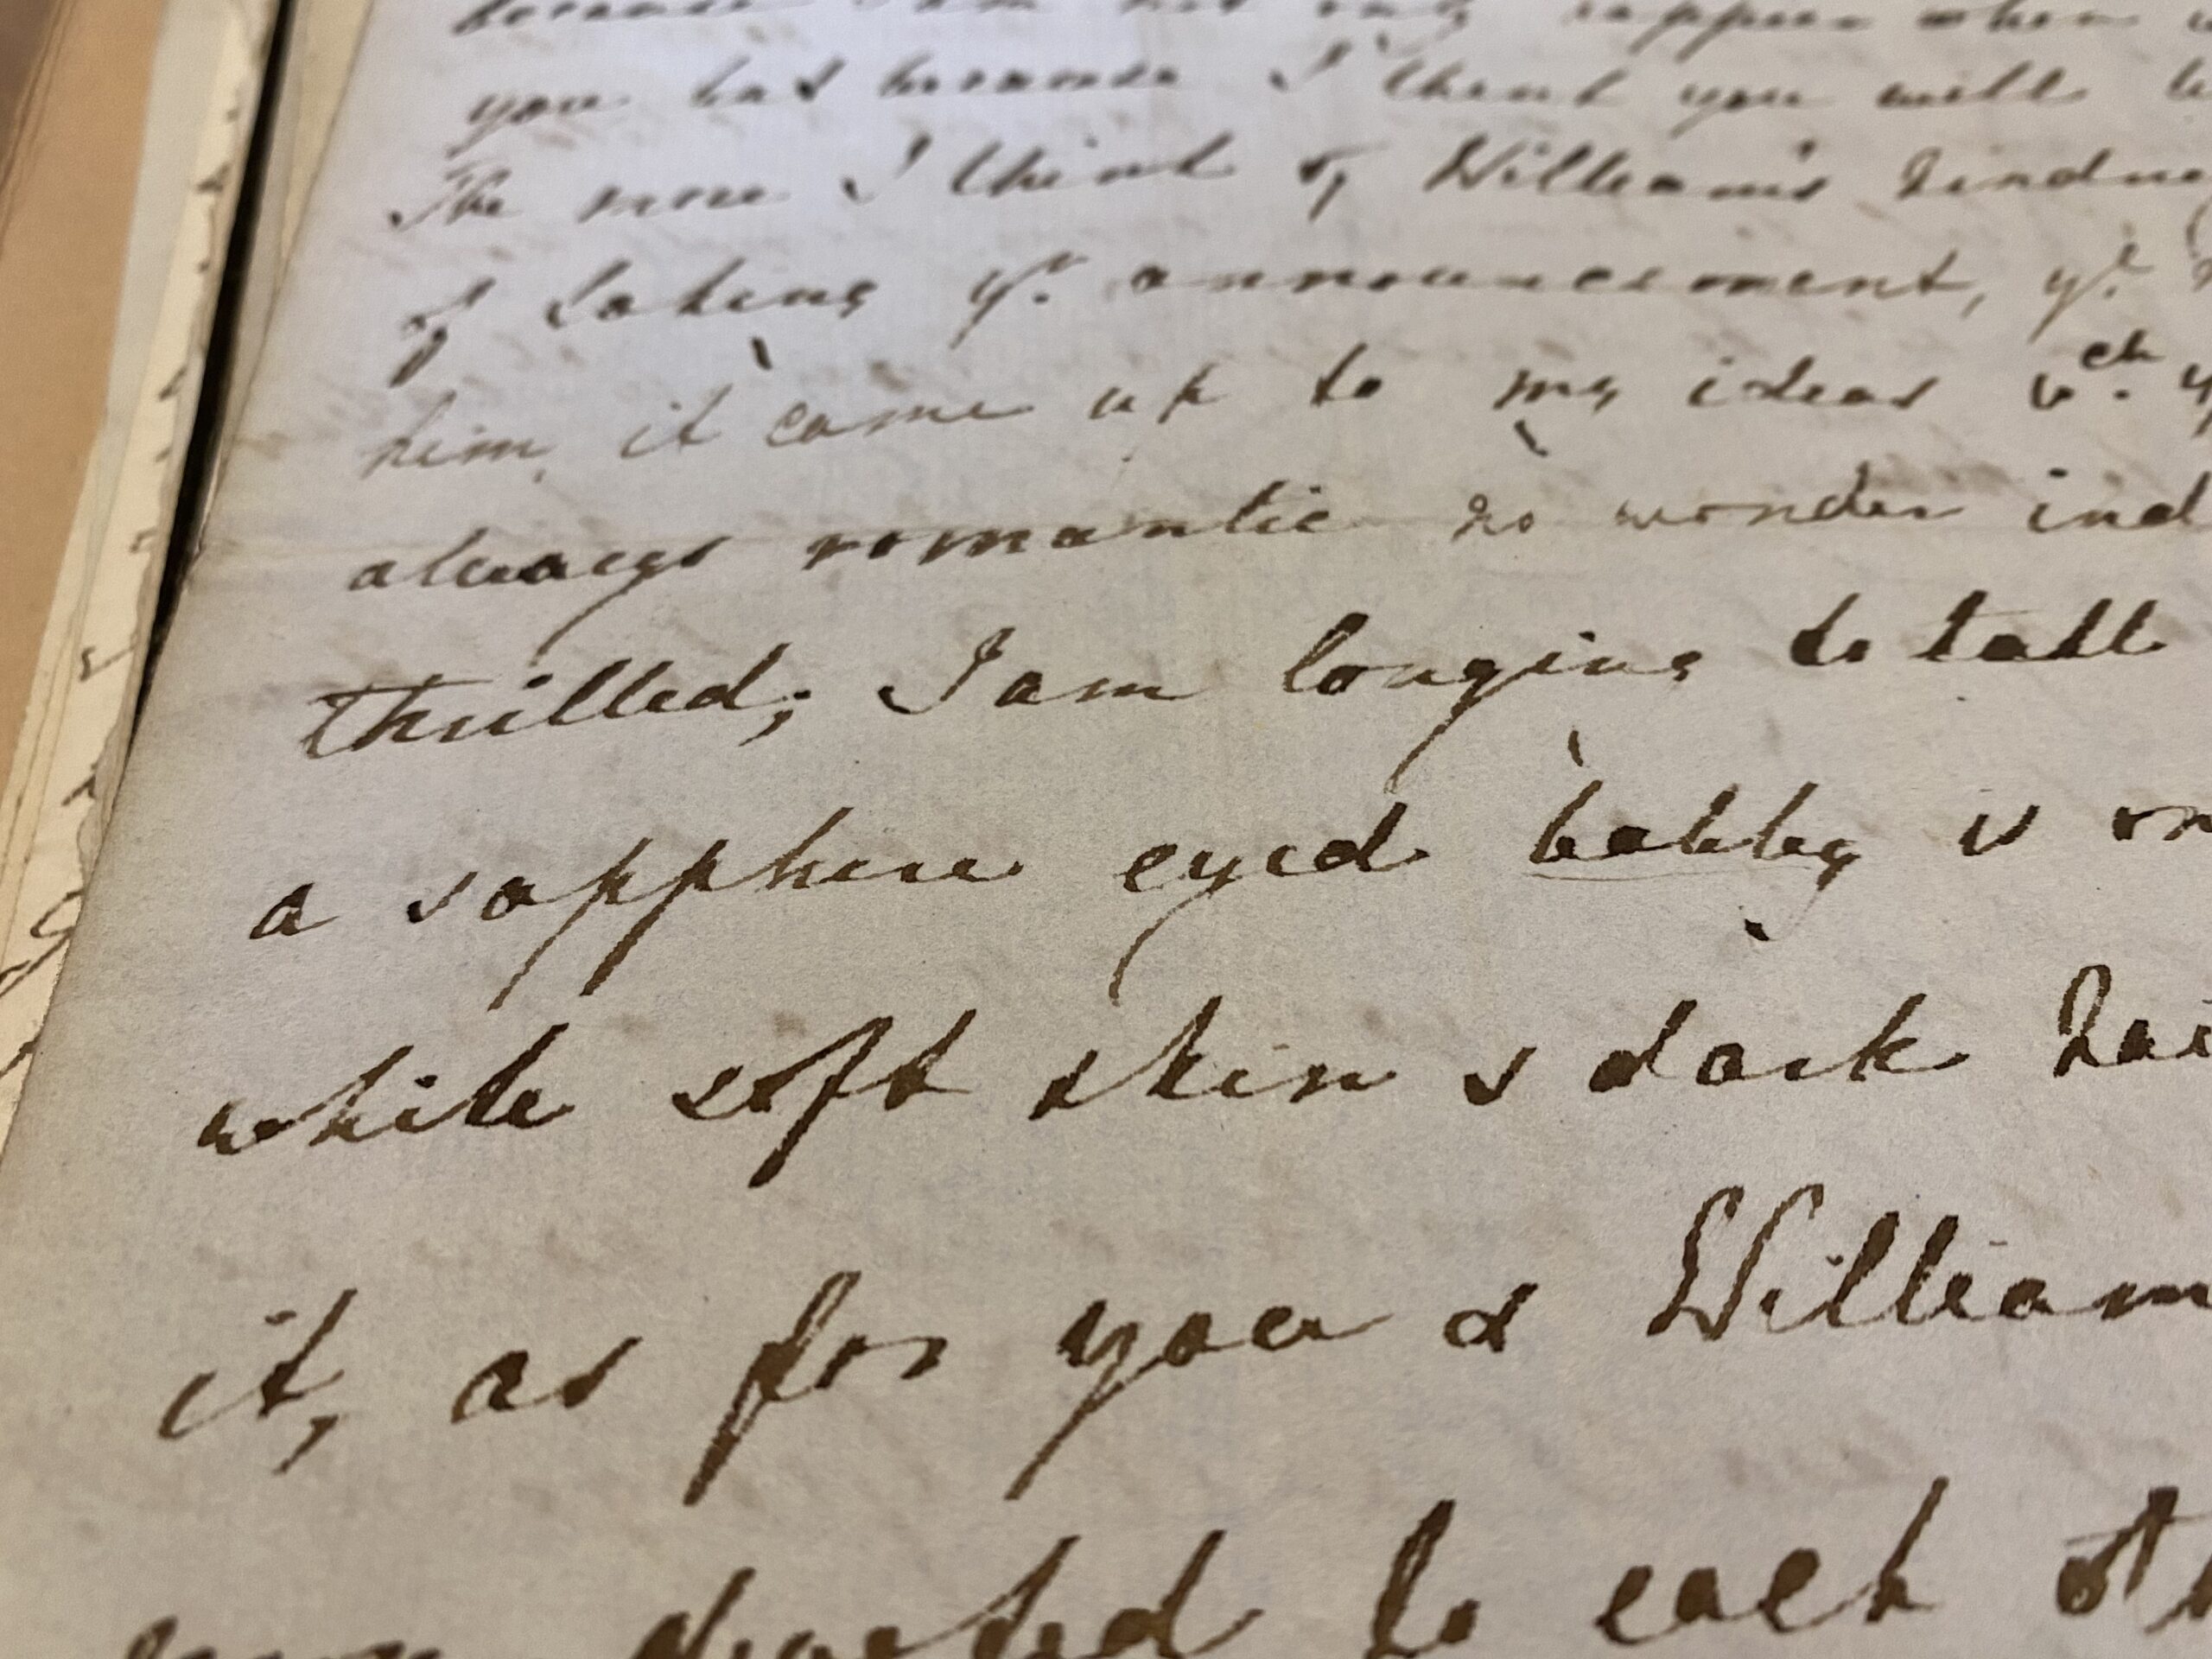 because I am not only happier when
you but because I think you will
The more I think of William's kindne
of taking yr. announcement, yr.
him, it came up to my ideas wch.
always romantic no wonder ind
thrilled; I am longing to talk
a sapphire eyed babby is on
white soft skin & dark hai
it, as for you & William
devoted to each oth